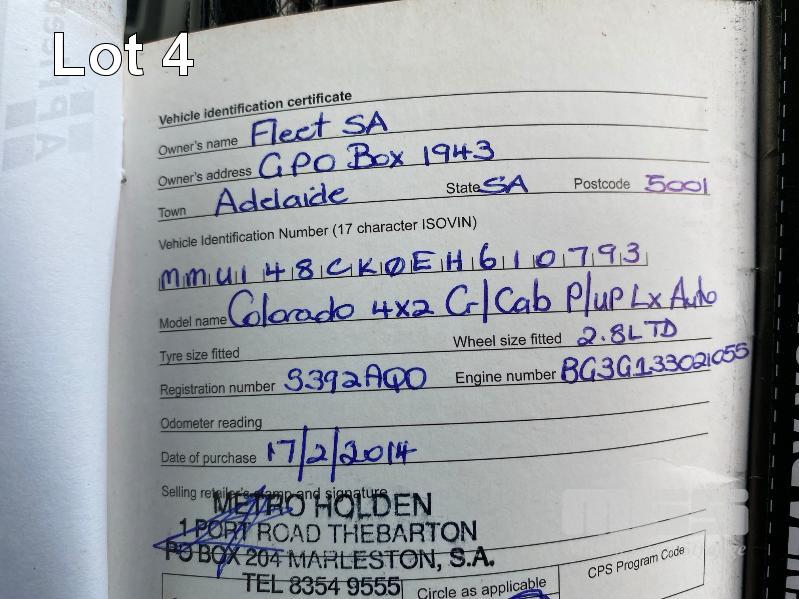 Lot 4
Vehicle identification certificate
Owner's name Fleet SA
Owner's address GPO Box 1943
Town Adelaide State SA Postcode 5001
Vehicle Identification Number (17 character ISOVIN)
MMU148CK0EH610793
Model name Colorado 4x2 C/Cab P/up Lx Auto
Tyre size fitted Wheel size fitted 2.8L TD
Registration number S392AQO Engine number BG3G133021055
Odometer reading
Date of purchase 17/2/2014
Selling retailer's stamp and signature
METRO HOLDEN
1 PORT ROAD THEBARTON
PO BOX 204 MARLESTON, S.A.
TEL 8354 9555
Circle as applicable
CPS Program Code